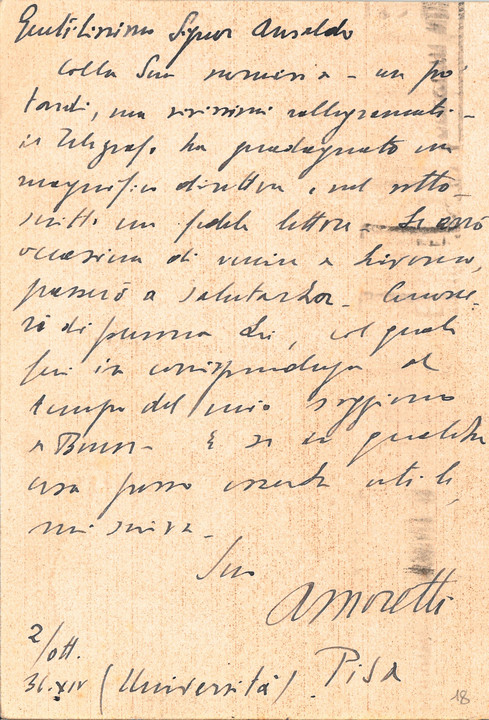 Gentilissimo Signor Ansaldo
Colla Sua nomina - un po'
tardi, ma vivissimi rallegramenti -
il Telegrafo ha guadagnato un
magnifico direttore, e nel sotto-
scritto un fedele lettore. Se avrò
occasione di venire a Livorno,
passerò a salutarLa. Conosce-
rò di persona Lei, col quale
fui in corrispondenza al
tempo del mio soggiorno
a Bonn. E se in qualche
cosa posso esserLe utile,
mi scriva.
Suo
Amoretti
2/ott.
36.XIV (Università) Pisa
18